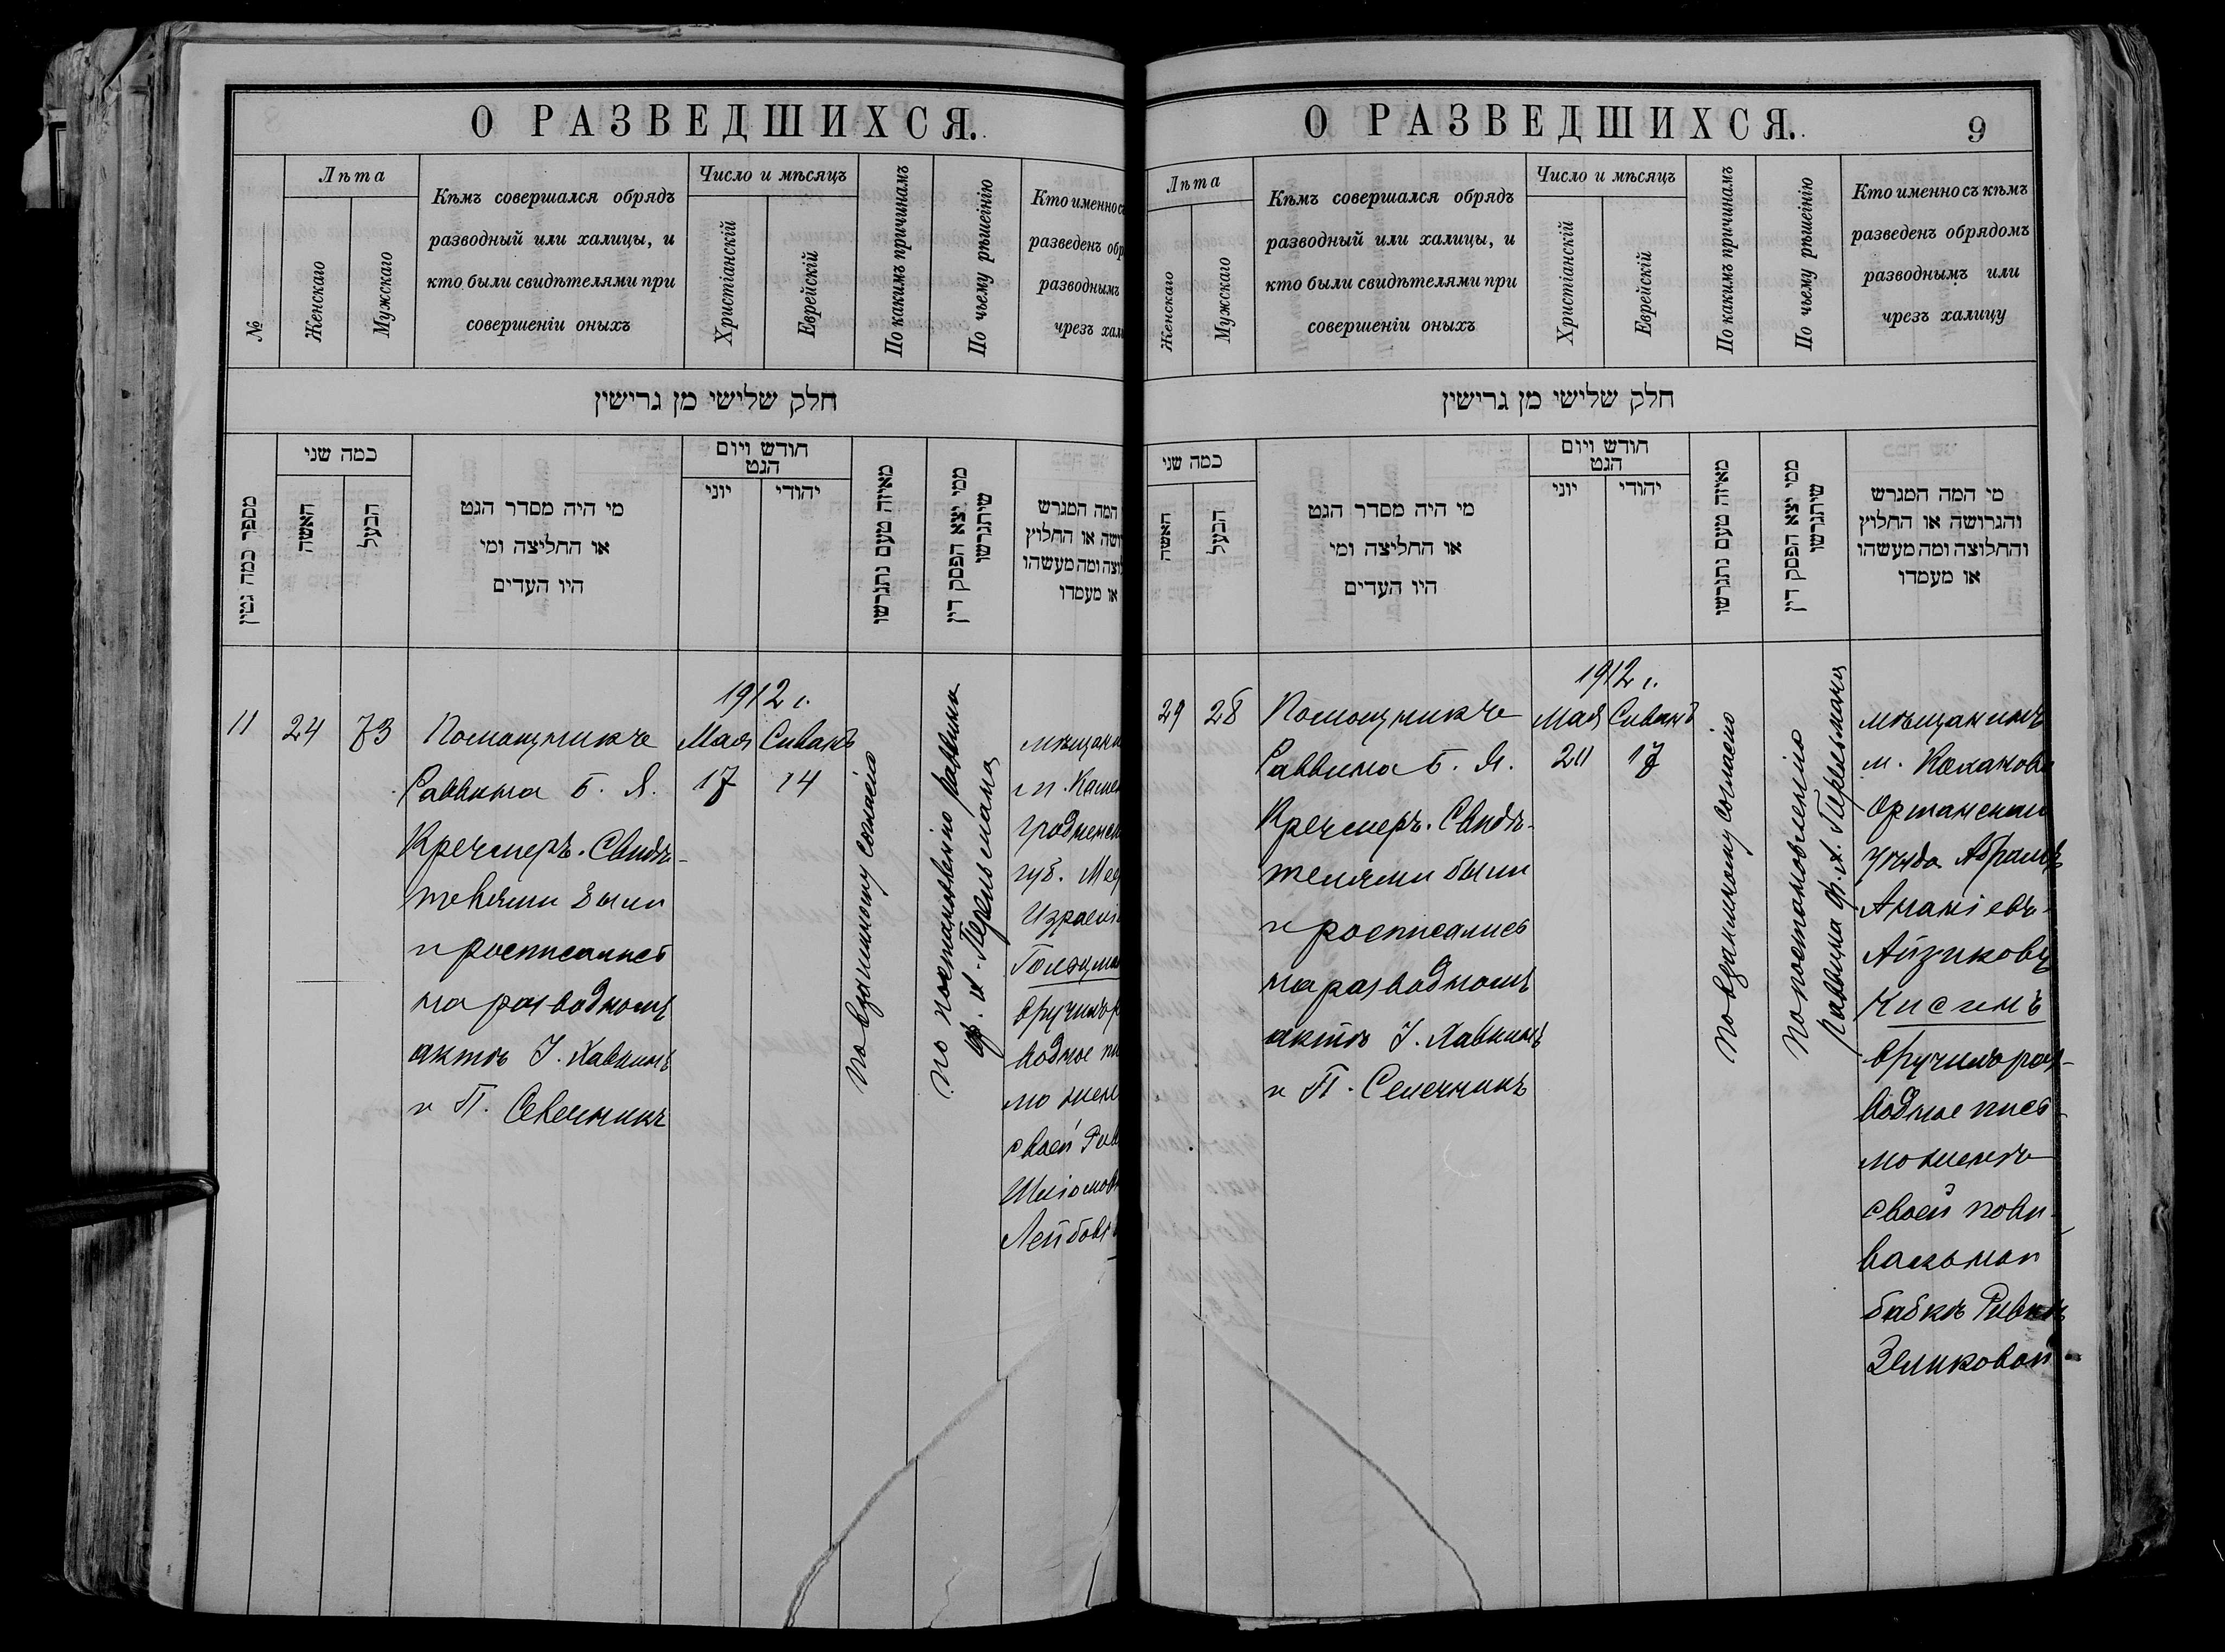 О РАЗВЕДШИХСЯ.
№
Лѣта
Женскаго
Мужскаго
Кѣмъ совершался обрядъ
разводный или халицы, и
кто были свидѣтелями при
совершеніи оныхъ
Число и мѣсяцъ
Христіанскій
Еврейскій
По какимъ причинамъ
По чьему рѣшеінію
Кто именно съ
разведенъ обр
разводнымъ
чрезъ хал
חלק שלישי מן גרישין
מספר כמה גטין
כמה שני
האשה
הבעל
מי היה מסדר הגט
או החליצה ומי
היו העדים
חודש ויום
הגט
יוני
יהודי
מאיזה טעם נתגרשו
ממי יצא הפסק דין
שיתגרשו
המה המגרש
ושה או החלוץ
לוצה ומה מעשהו
או מעמדו
11
24
73
Помощникъ
Раввина Б. Я.
Кречмеръ. Свидѣ-
телями были
и росписались
на разводномъ
актѣ І. Хавкинъ
и П. Селечникъ
1912 г.
Мая Сиванъ
17 14
По взаимному согласію
По постановленію раввина
Ф. А. Перельмана
мѣщани
г. п. Камен
Гродненск
губ. Ме
Израел
Гольцма
вручилъ р
водное пи
мо жен
своей Рив
Шліомов
Лейбов
О РАЗВЕДШИХСЯ.
9
Лѣта
Женскаго
Мужскаго
Кѣмъ совершался обрядъ
разводный или халицы, и
кто были свидѣтелями при
совершеніи оныхъ
Число и мѣсяцъ
Христіанскій
Еврейскій
По какимъ причинамъ
По чьему рѣшеінію
Кто именно съ кѣмъ
разведенъ обрядомъ
разводнымъ или
чрезъ халицу
חלק שלישי מן גרישין
כמה שני
האשה
הבעל
מי היה מסדר הגט
או החליצה ומי
היו העדים
חודש ויום
הגט
יוני
יהודי
מאיזה טעם נתגרשו
ממי יצא הפסק דין
שיתגרשו
מי המה המגרש
והגרושה או החלוץ
והחלוצה ומה מעשהו
או מעמדו
29
28
Помощникъ
Раввина Б. Я.
Кречмеръ. Свидѣ-
телями были
и росписались
на разводномъ
актѣ І. Хавкинъ
и П. Селечникъ
1912 г.
Мая Сиванъ
20 17
По взаимному согласію
По постановленію
раввина Ф. А. Перельмана
мѣщанинъ
м. Коханова
Оршанскаго
уѣзда Абрамъ
Ананіевъ-
Айзиковъ
Кисинъ
вручилъ раз-
водное пись-
мо женѣ
своей пови-
вальной
бабкѣ Ривкѣ
Зеликовой